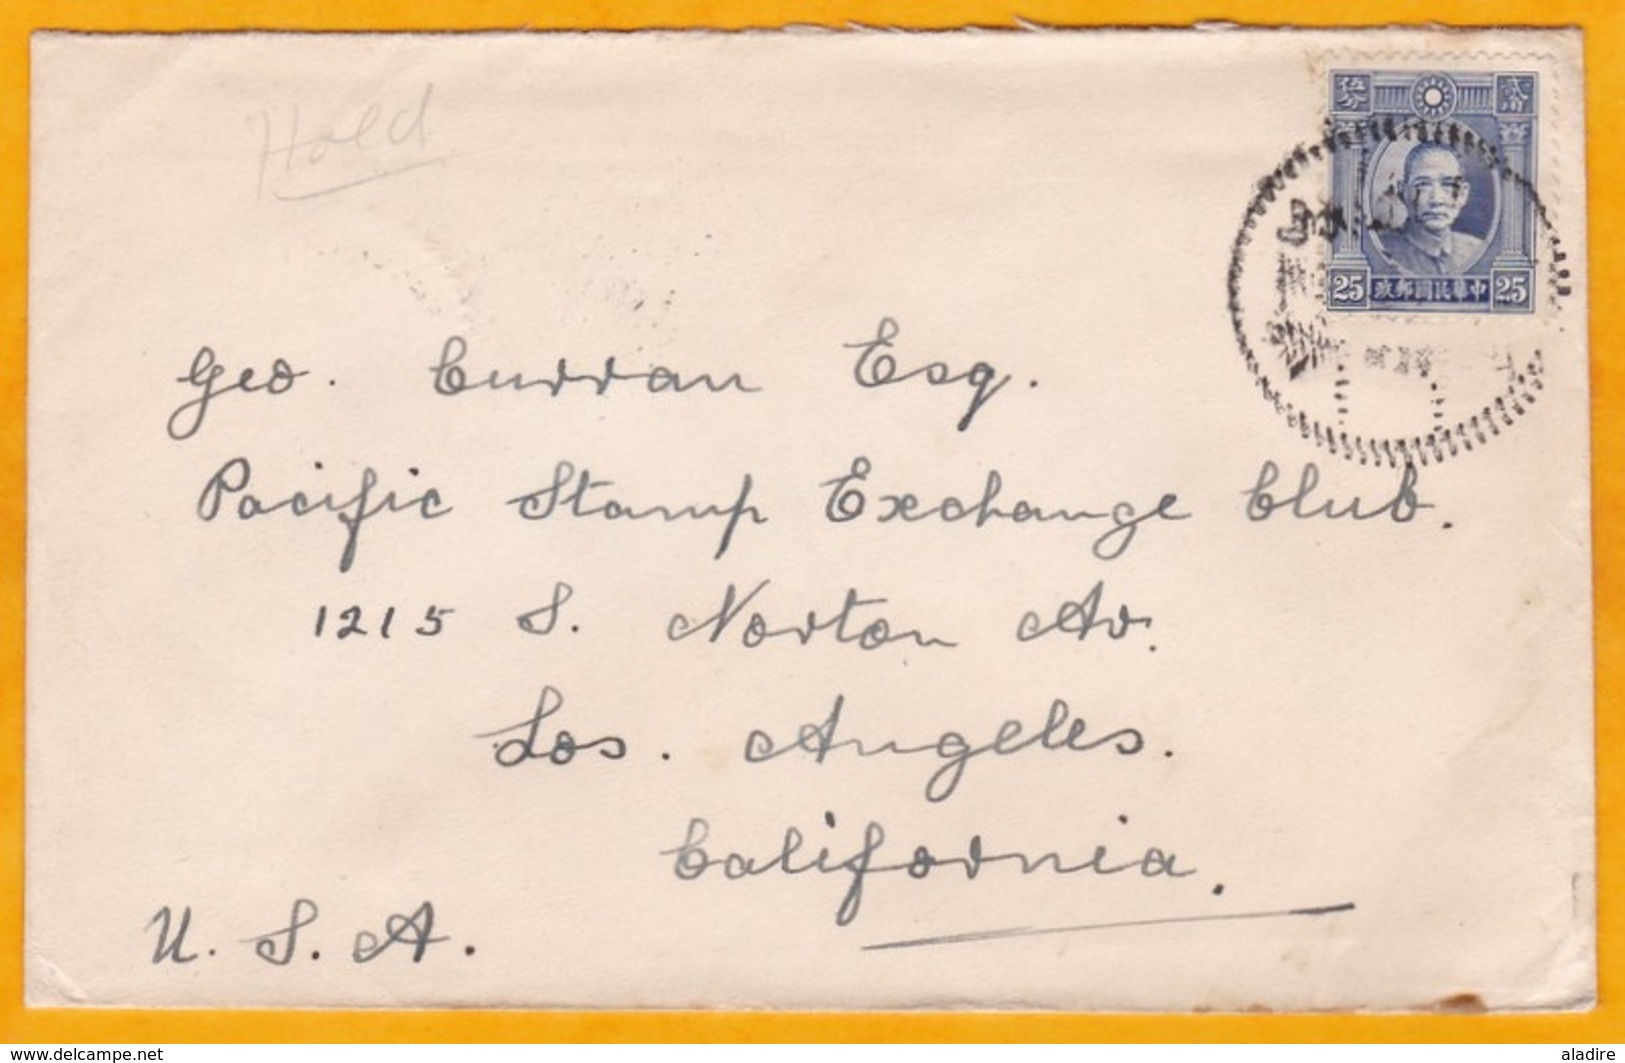 Hold
伍分
貳角
25
政郵國民華中
25
Geo. Curran Esq.
Pacific Stamp Exchange Club.
1215 S. Norton Av.
Los. Angeles.
California.
U. S. A.
www.delcampe.net
aladire